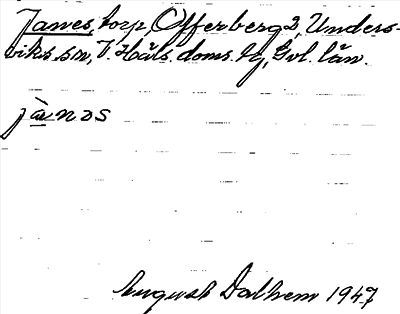 Janes, torp, Offerberg 2, Unders-
viks sn, V. Häls. doms. hg, Gvl. län.
jànos
August Dalhem 1947